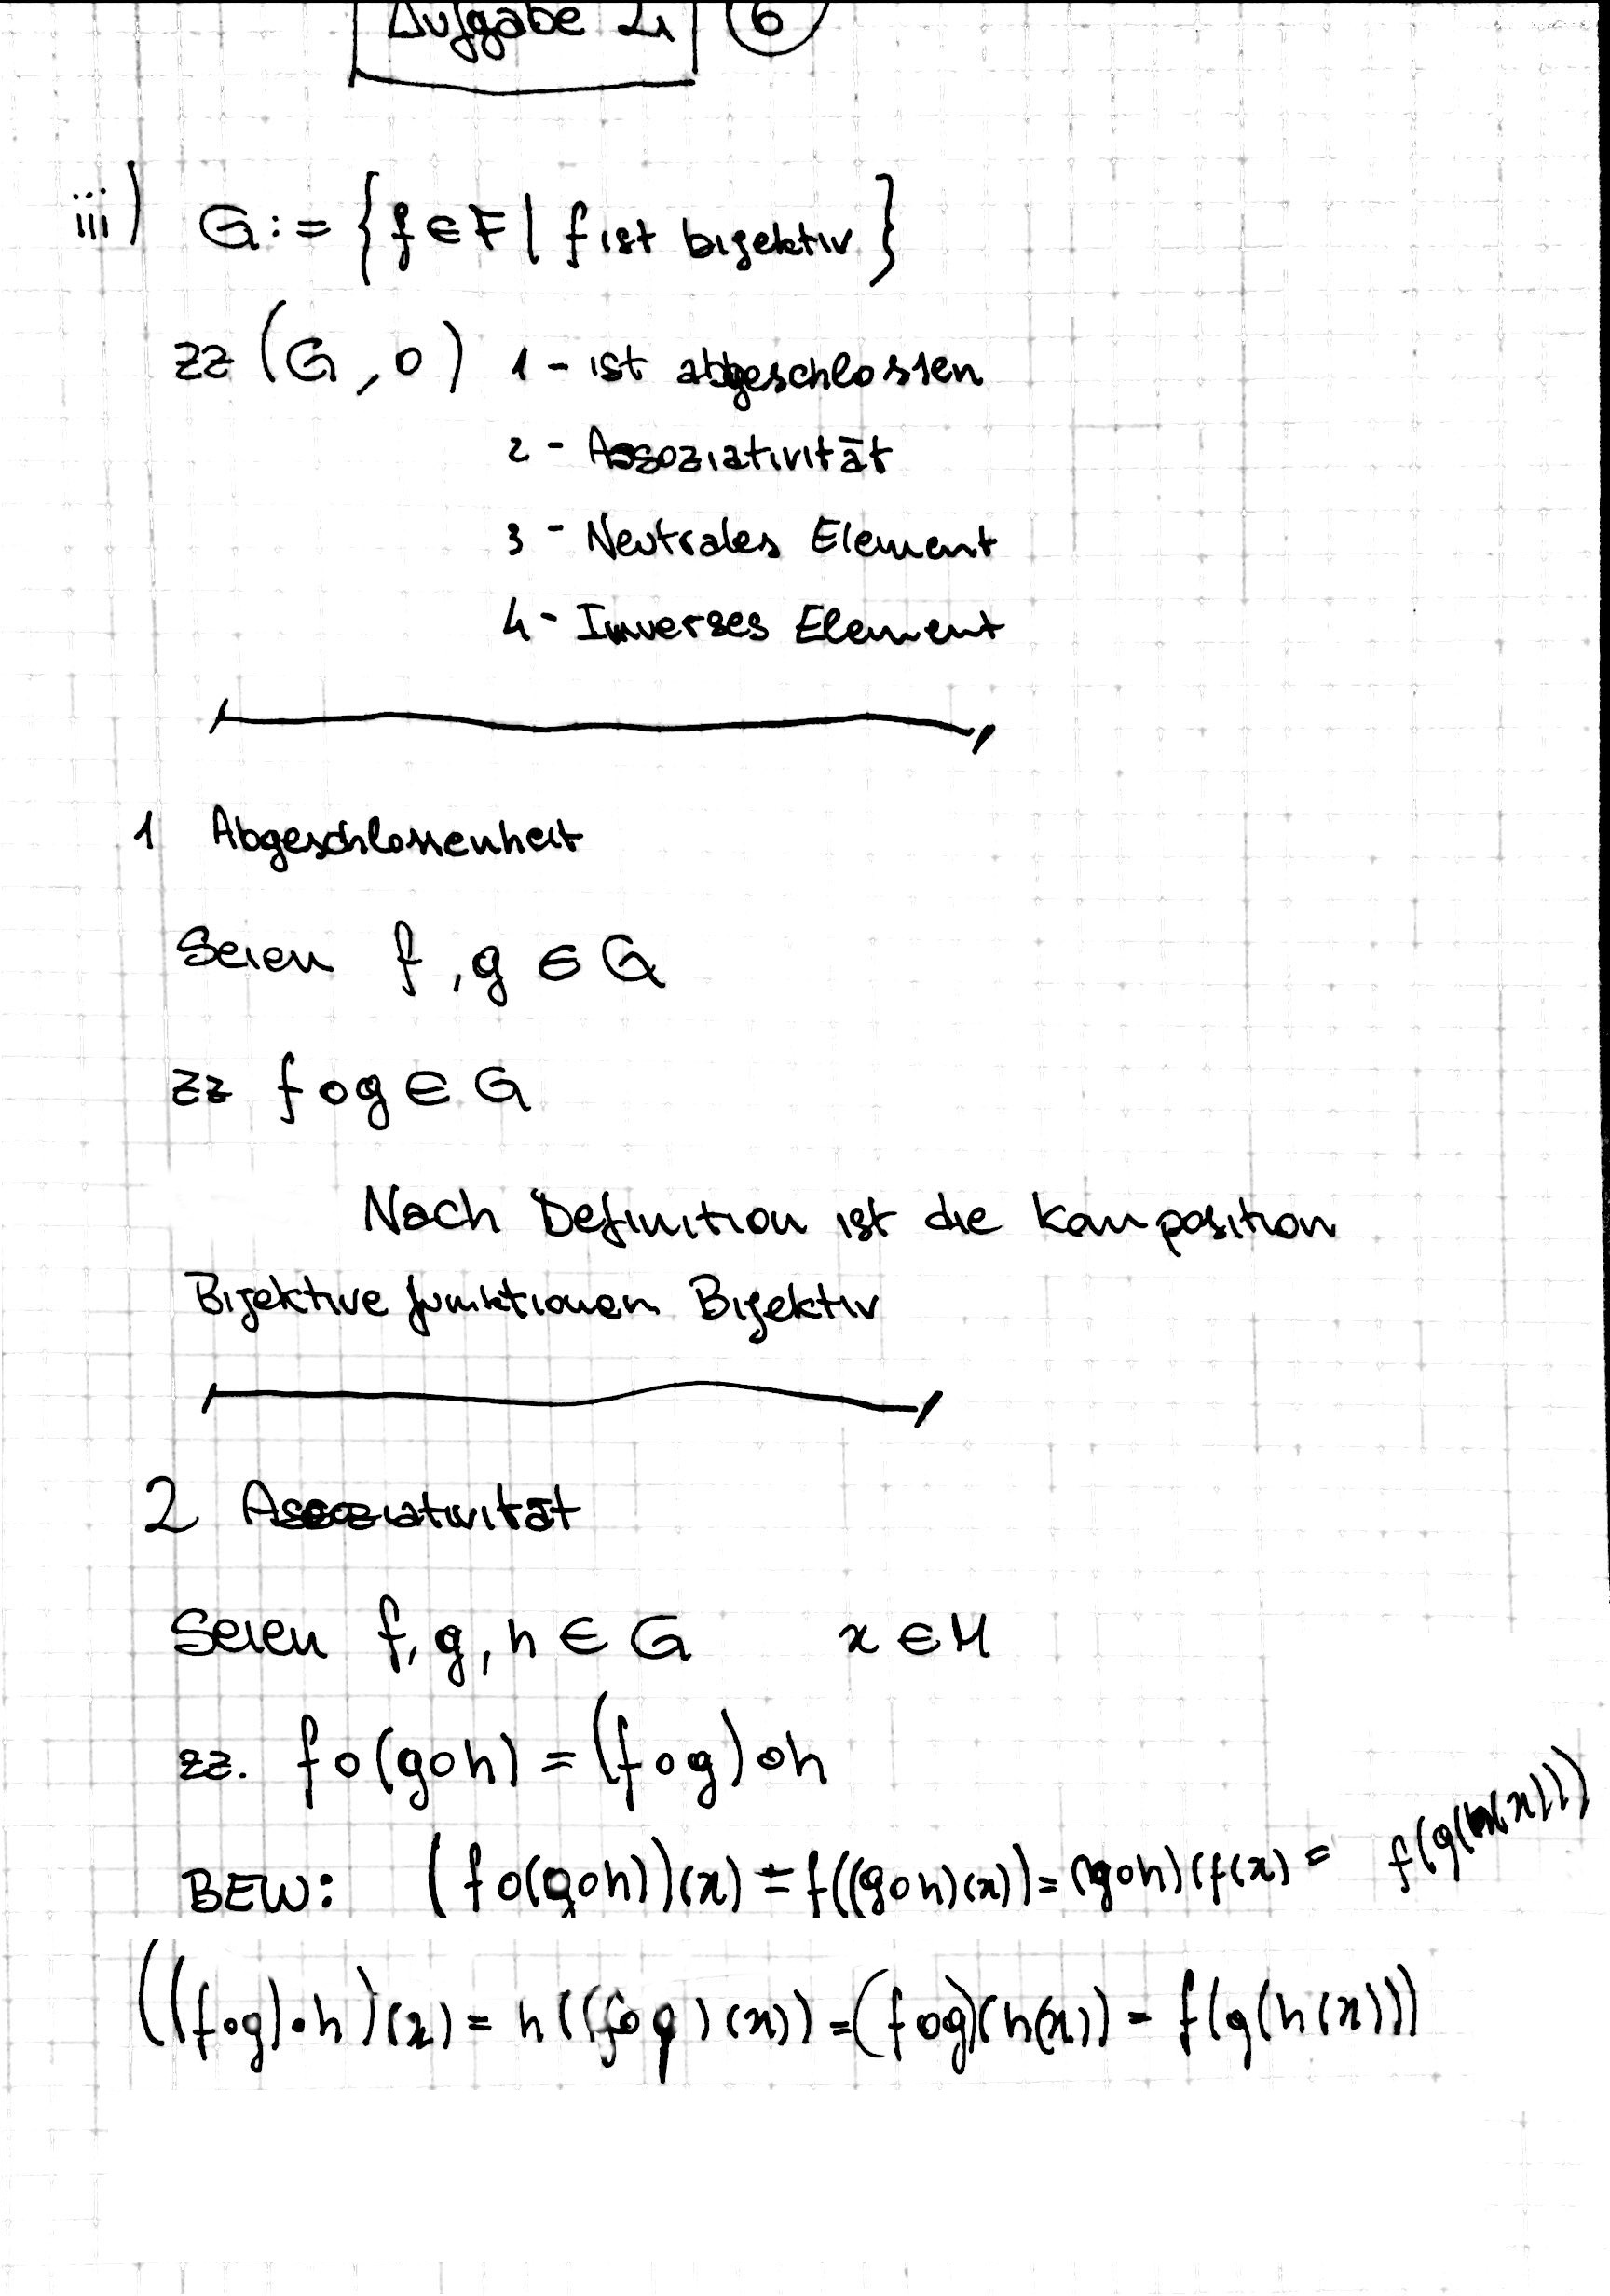 Aufgabe 4 6
iii) G := {f ∈ F | f ist bijektiv}
zz (G, o) 1 - ist abgeschlossen
2 - Assoziativität
3 - Neutrales Element
4 - Inverses Element
1 Abgeschlossenheit
Seien f, g ∈ G
zz f o g ∈ G
Nach Definition ist die Komposition
Bijektive funktionen Bijektiv
2 Assoziativität
Seien f, g, h ∈ G x ∈ M
zz. f o (g o h) = (f o g) o h
BEW: (f o (g o h))(x) = f((g o h)(x)) = (g o h)(f(x) = f(g(h(x)))
((f o g) o h)(x) = h((f o g)(x)) = (f o g)(h(x)) = f(g(h(x)))